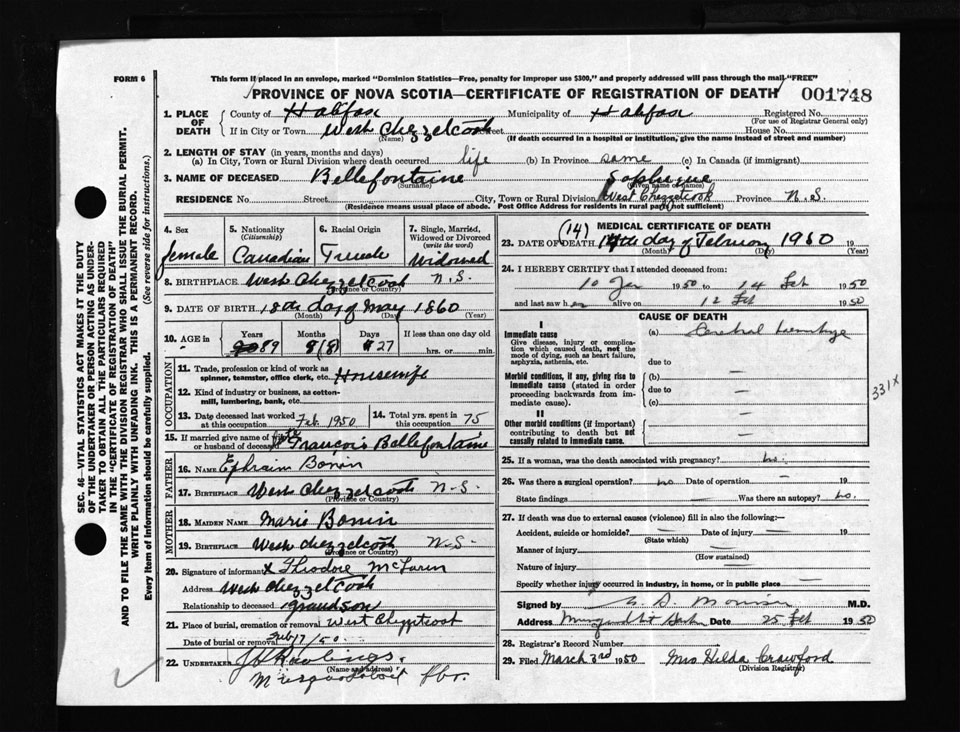 FORM 6
This form if placed in an envelope, marked "Dominion Statistics—Free, penalty for improper use $300," and properly addressed will pass through the mail "FREE"
PROVINCE OF NOVA SCOTIA—CERTIFICATE OF REGISTRATION OF DEATH 001748
1. PLACE OF DEATH
County of Halifax Municipality of Halifax Registered No.
(For use of Registrar General only)
If in City or Town West Chezzetcook Street House No.
(Name) (If death occurred in a hospital or institution, give the name instead of street and number)
2. LENGTH OF STAY (in years, months and days)
(a) In City, Town or Rural Division where death occurred life (b) In Province same (c) In Canada (if immigrant)
3. NAME OF DECEASED Bellefontaine Sophique
(Surname) (Given name or names)
RESIDENCE No. Street City, Town or Rural Division West Chezzetcook Province N.S.
(Residence means usual place of abode. Post Office Address for residents in rural parts not sufficient)
4. Sex 5. Nationality (Citizenship) 6. Racial Origin 7. Single, Married, Widowed or Divorced (write the word)
female Canadian French Widowed
8. BIRTHPLACE West Chezzelcook N.S.
(Province or Country)
9. DATE OF BIRTH 18th day of May 1860
(Month) (Day) (Year)
10. AGE in Years Months Days If less than one day old
89 8 (8) 27 hrs. or min.
OCCUPATION
11. Trade, profession or kind of work as spinner, teamster, office clerk, etc. Housewife
12. Kind of industry or business, as cotton-mill, lumbering, bank, etc.
13. Date deceased last worked at this occupation Feb. 1950 14. Total yrs. spent in this occupation 75
15. If married give name of wife or husband of deceased François Bellefontaine
FATHER
16. NAME Ephraim Bonin
17. BIRTHPLACE West Chezzelcook N.S.
(Province or Country)
MOTHER
18. MAIDEN NAME Marie Bonin
19. BIRTHPLACE West Chezzelcook N.S.
(Province or Country)
20. Signature of informant x Theodore McLaren
Address West Chezzelcook
Relationship to deceased grandson
21. Place of burial, cremation or removal West Chezzetcook
Date of burial or removal Feb 17/50
22. UNDERTAKER J D Rawlings.
(Name and address)
Musquodoboit Hbr.
MEDICAL CERTIFICATE OF DEATH
23. DATE OF DEATH (14) 14th day of February 1950 19
(Month) (Day) (Year)
24. I HEREBY CERTIFY that I attended deceased from:
10 Jan 1950 to 14 Feb 1950
and last saw her alive on 12 Feb 1950
CAUSE OF DEATH
I
Immediate cause (a) Cerebral haemorrhage
Give disease, injury or complication which caused death, not the mode of dying, such as heart failure, asphyxia, asthenia, etc.
due to
Morbid conditions, if any, giving rise to immediate cause (stated in order proceeding backwards from immediate cause).
(b) —
due to —
(c) —
331X
II
Other morbid conditions (if important) contributing to death but not causally related to immediate cause.
—
—
25. If a woman, was the death associated with pregnancy? no.
26. Was there a surgical operation? no Date of operation —
State findings — Was there an autopsy? no.
27. If death was due to external causes (violence) fill in also the following:—
Accident, suicide or homicide? — Date of injury — 19
(State which)
Manner of injury —
(How sustained)
Nature of injury —
Specify whether injury occurred in industry, in home, or in public place —
Signed by M.D.
Address Date 25 Feb 1950
28. Registrar's Record Number
29. Filed March 3rd 1950 Mrs Hilda Crawford
(Division Registrar)
SEC. 46—VITAL STATISTICS ACT MAKES IT THE DUTY
OF THE UNDERTAKER OR PERSON ACTING AS UNDERTAKER
TO OBTAIN ALL THE PARTICULARS REQUIRED
IN THE "CERTIFICATE OF REGISTRATION OF DEATH"
AND TO FILE THE SAME WITH THE DIVISION REGISTRAR WHO SHALL ISSUE THE BURIAL PERMIT.
WRITE PLAINLY WITH UNFADING INK. THIS IS A PERMANENT RECORD.
Every item of Information should be carefully supplied. (See reverse side for instructions.)